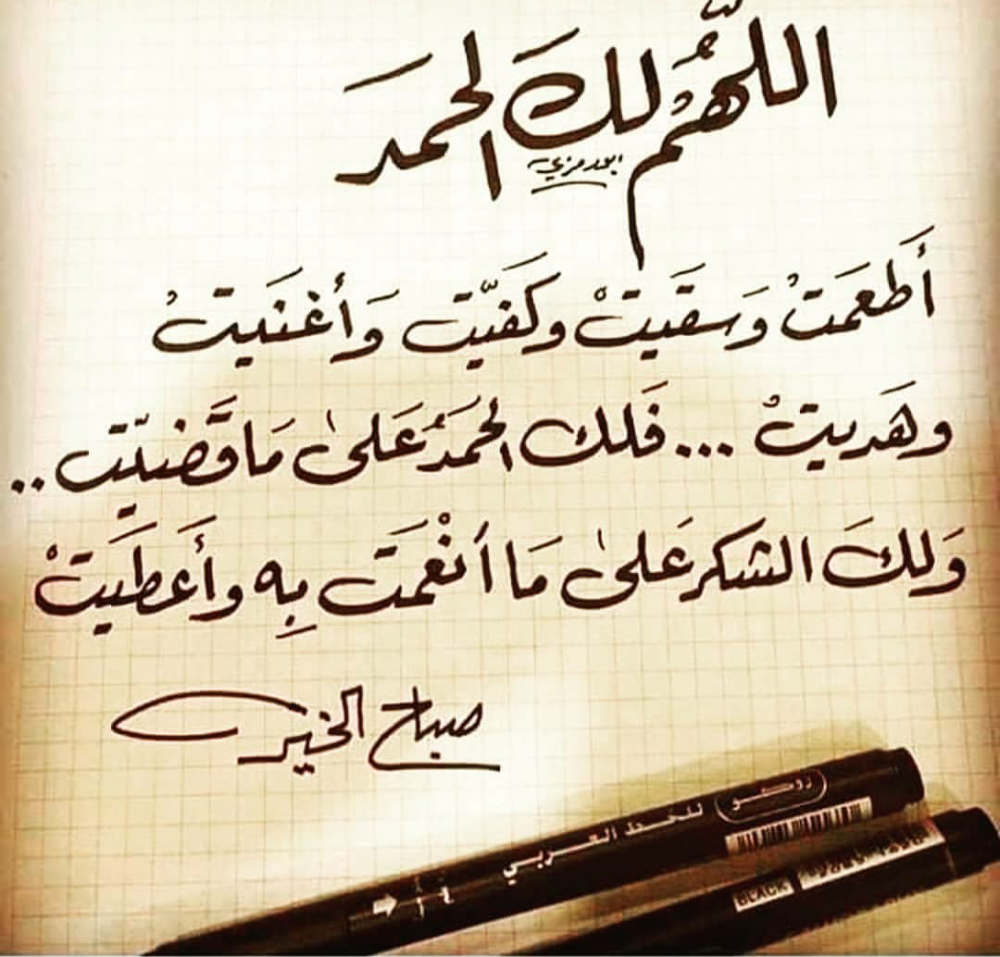 اللّهُم لك الحمدَ
ابو رمزي
أَطعَمتْ وَسَقَيتْ وكَفيّت وَأغنَيتْ
وهَديتْ ... فَلك الحمَدُ عَلىٰ مَا قَضيّت ..
وَلكَ الشكر عَلىٰ مَا أنْعَمَت بِه وأَعطَيتْ
صباح الخير
زوكو للخط العربي
BLACK